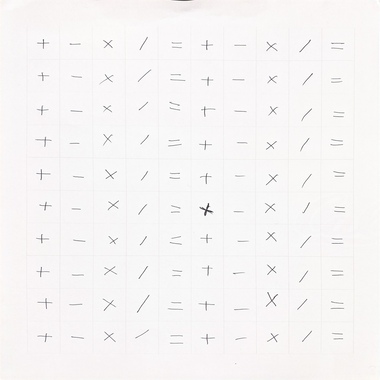 + − × / = + − × / =
+ − × / = + − × / =
+ − × / = + − × / =
+ − × / = + − × / =
+ − × / = + − × / =
+ − × / = × − × / =
+ − × / = + − × / =
+ − × / = + − × / =
+ − × / = + − × / =
+ − × / = + − × / =